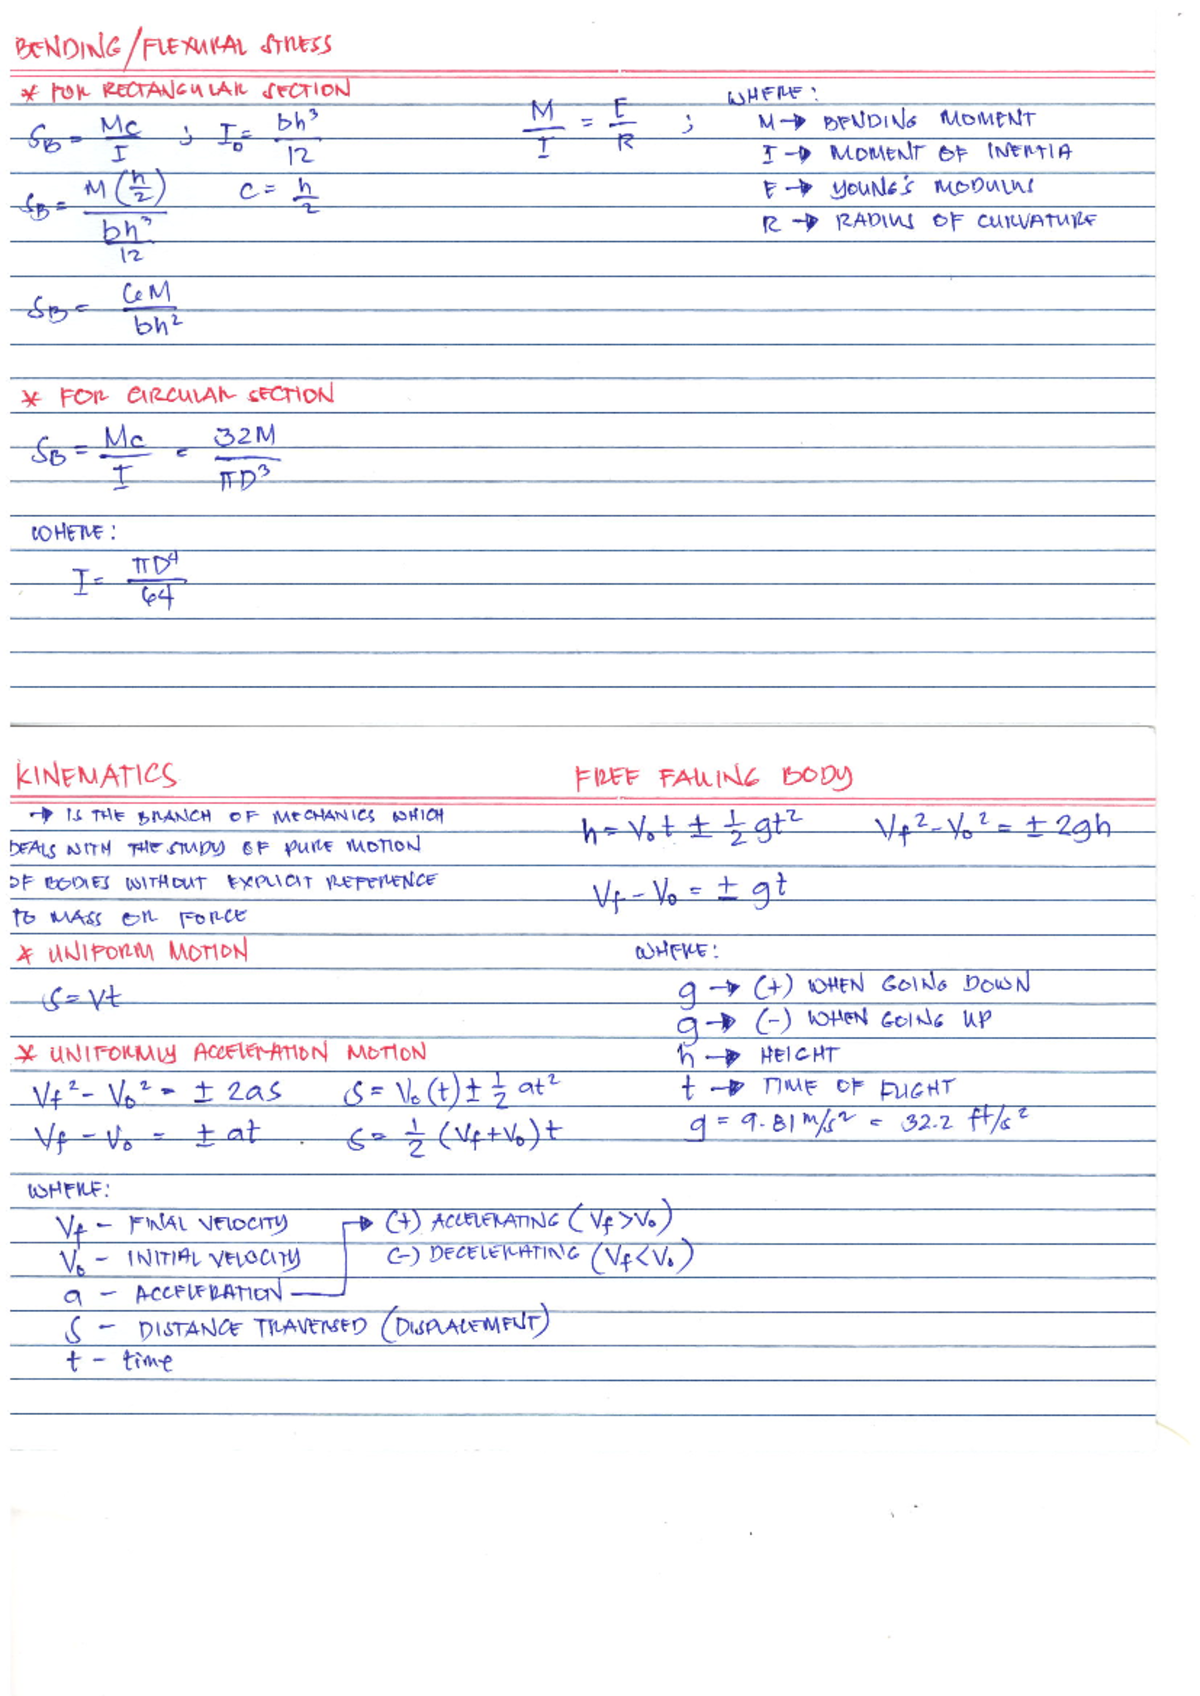 BENDING/FLEXURAL STRESS
* FOR RECTANGULAR SECTION
S_B = Mc/I ; I_o = bh³/12
M/I = E/R ;
WHERE:
M → BENDING MOMENT
I → MOMENT OF INERTIA
E → YOUNG'S MODULUS
R → RADIUS OF CURVATURE
S_B = M(h/2)/(bh³/12)
C = h/2
S_B = 6M/bh²
* FOR CIRCULAR SECTION
S_B = Mc/I = 32M/πD³
WHERE:
I = πD⁴/64
KINEMATICS
→ IS THE BRANCH OF MECHANICS WHICH
DEALS WITH THE STUDY OF PURE MOTION
OF BODIES WITHOUT EXPLICIT REFERENCE
TO MASS OR FORCE
* UNIFORM MOTION
S = Vt
* UNIFORMLY ACCELERATION MOTION
Vf² - Vo² = ± 2aS
S = Vo(t) ± 1/2 at²
Vf - Vo = ± at .
S = 1/2 (Vf + Vo) t
WHERE:
Vf - FINAL VELOCITY
Vo - INITIAL VELOCITY
a - ACCELERATION
→ (+) ACCELERATING (Vf > Vo)
(-) DECELERATING (Vf < Vo)
S - DISTANCE TRAVERSED (DISPLACEMENT)
t - time
FREE FALLING BODY
h = Vot ± 1/2 gt²
Vf² - Vo² = ± 2gh
Vf - Vo = ± gt
WHERE:
g → (+) WHEN GOING DOWN
g → (-) WHEN GOING UP
h → HEIGHT
t → TIME OF FLIGHT
g = 9.81 m/s² = 32.2 ft/s²